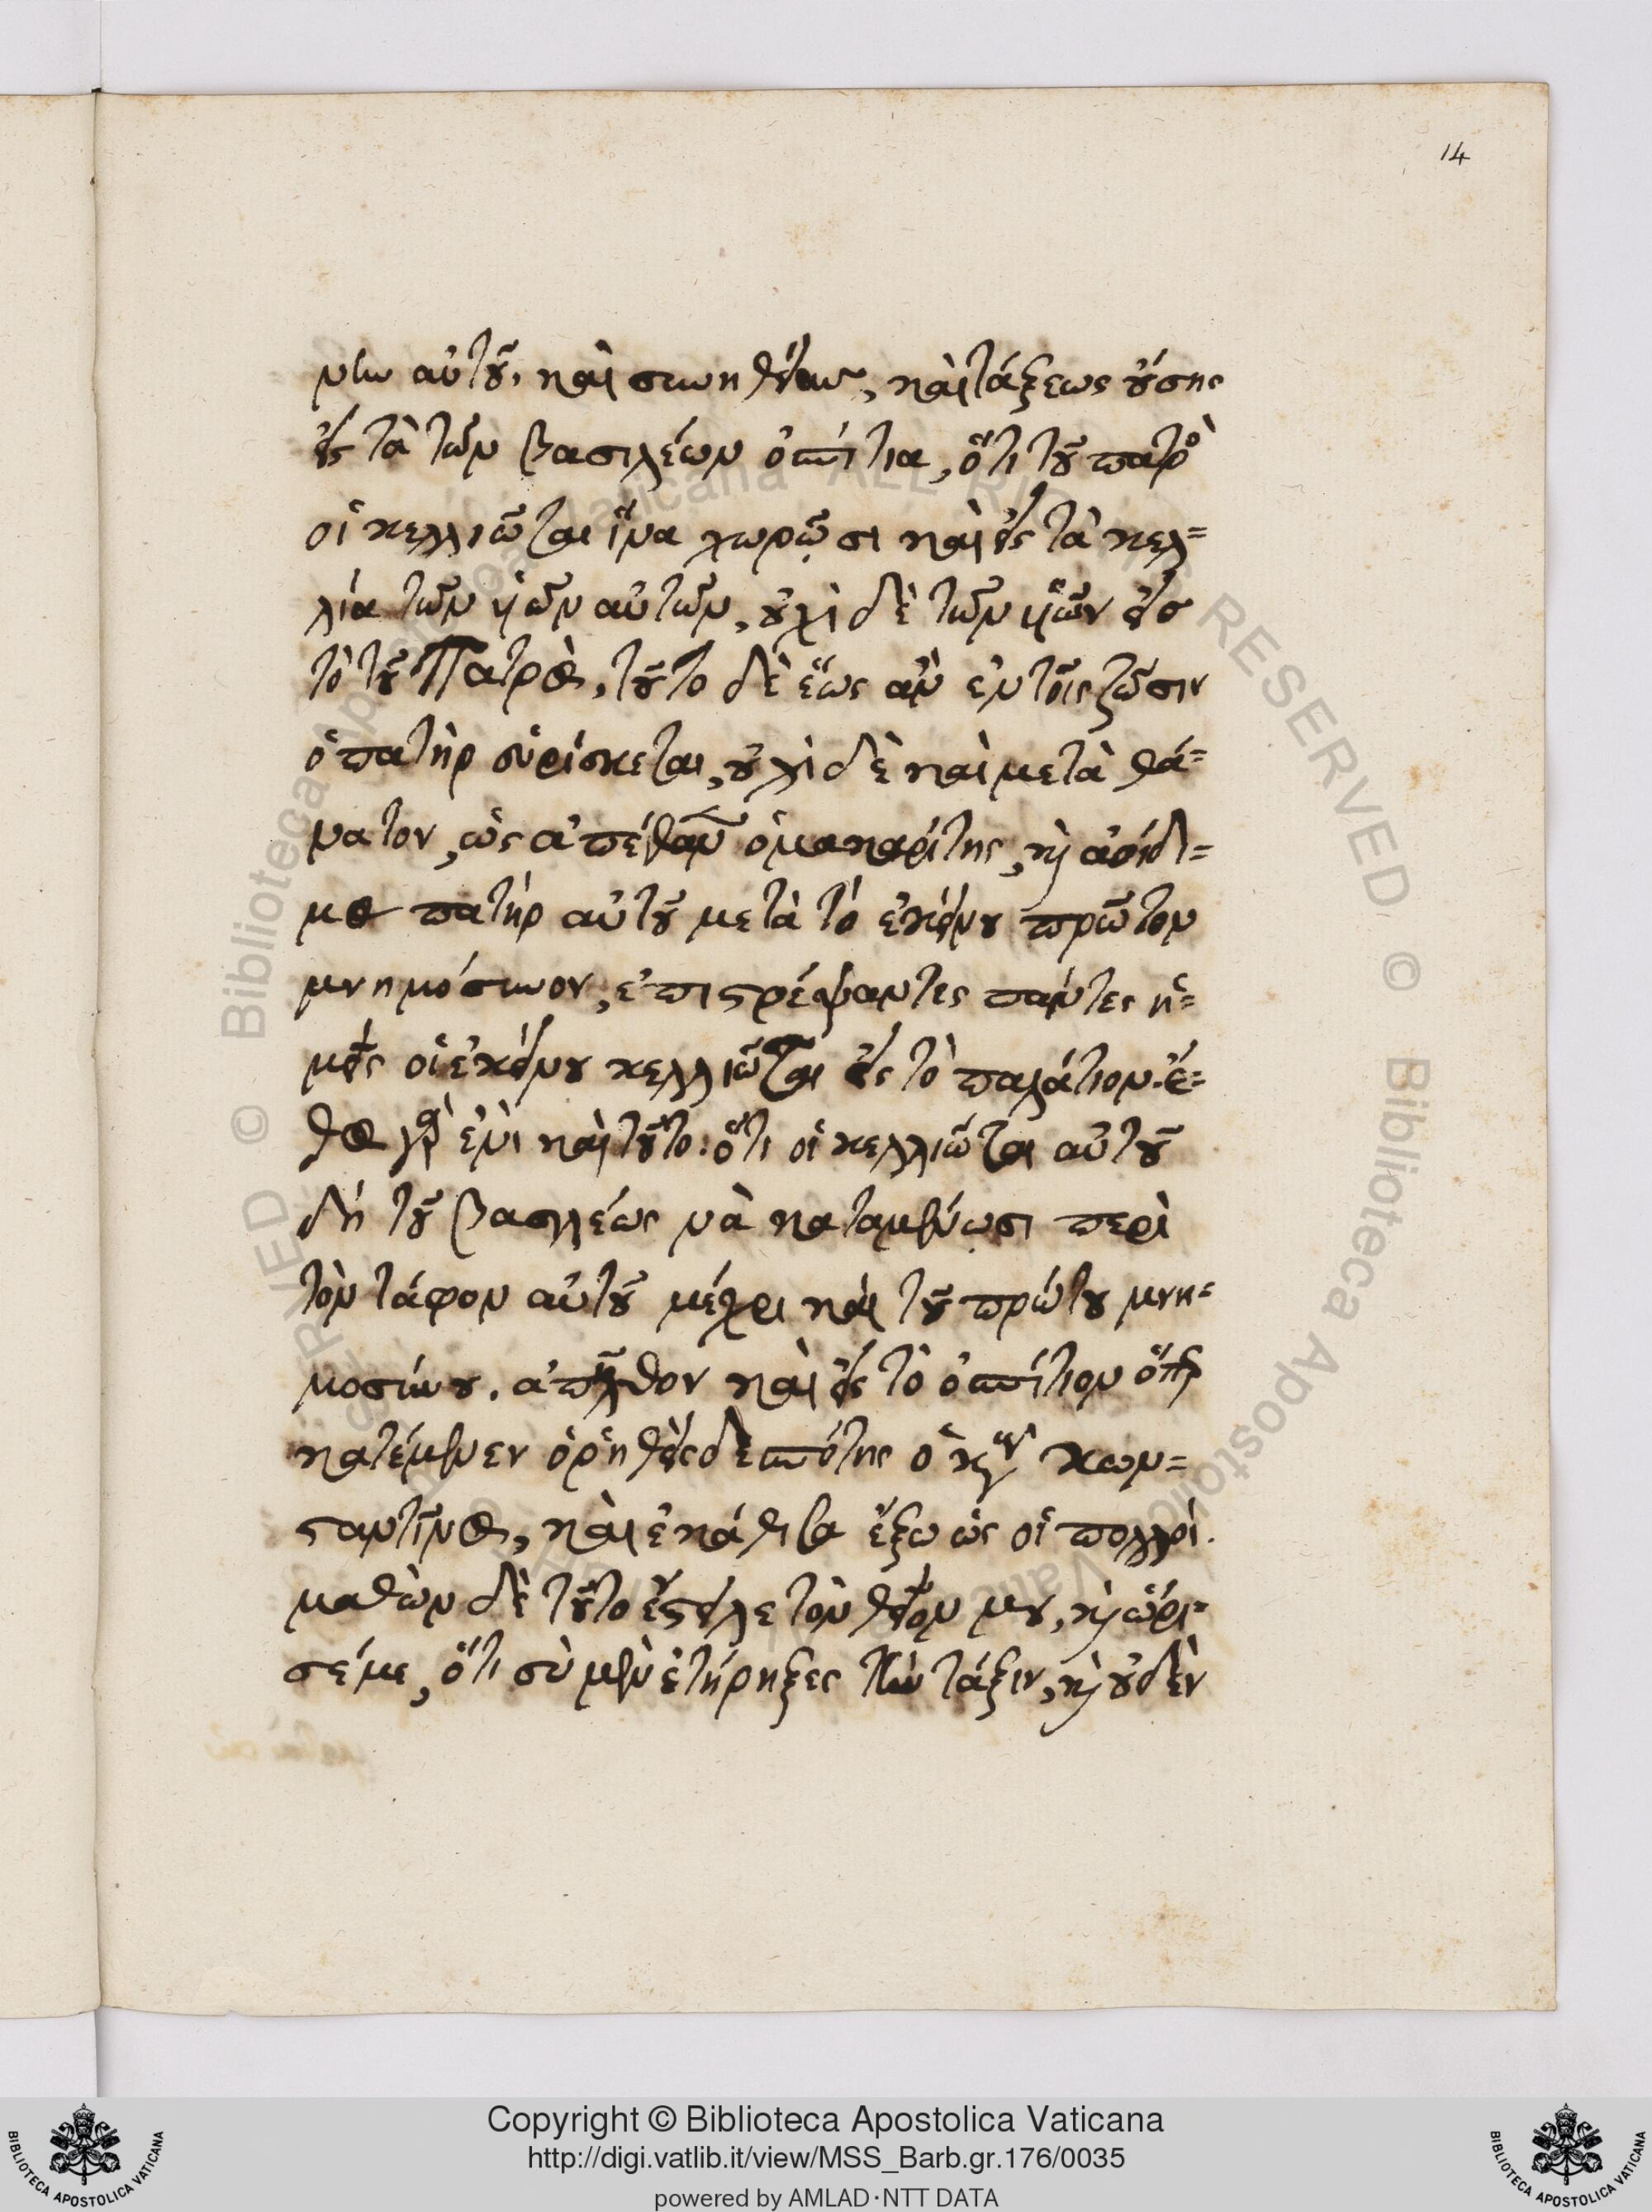 14
νην αὐτοῦ, καὶ συνηθείας, καὶ τάξεως οὔσης
εἰς τὰ τῶν βασιλέων ὀσπίτια, ὅτι τοῦ πατρὸς
οἱ κελλιῶται ἵνα χωρῶσι καὶ εἰς τὰ κελ=
λία τῶν υἱῶν αὐτῶν, οὐχὶ δὲ τῶν υἱῶν εἰς
τὸ τοῦ Πατρὸς, τοῦτο δὲ ἕως ἂν ἐν τοῖς ζῶσιν
ὁ πατὴρ εὑρίσκεται, οὐχὶ δὲ καὶ μετὰ θά=
νατον, ὡς ἀπέθανεν ὁ μακαρίτης, καὶ ἀοίδι=
μος πατὴρ αὐτοῦ μετὰ τὸ ἐκείνου πρῶτον
μνημόσυνον, ἐπιστρέψαντες πάντες ἡ=
μεῖς οἱ ἐκείνου κελλιῶται εἰς τὸ παλάτιον. ἔ=
θος γὰρ ἔνι καὶ τοῦτο: ὅτι οἱ κελλιῶται αὐτοῦ
δὴ τοῦ βασιλέως νὰ καταμένωσι περὶ
τὸν τάφον αὐτοῦ μέχρι καὶ τοῦ πρώτου μνη=
μοσύνου. ἀπῆλθον καὶ εἰς τὸ ὀσπίτιον ὅπερ
κατέμενεν ὁ ῥηθεὶς δεσπότης ὁ κὺρ Κων=
σταντῖνος, καὶ ἐκάθισα ἔξω ὡς οἱ πολλοί.
μαθὼν δὲ τοῦτο ἔστειλε τὸν θεῖον μου, καὶ ὥρι=
σέ με, ὅτι σὺ μὲν ἐτήρηξες τὴν τάξιν, καὶ οὐδὲν
Copyright © Biblioteca Apostolica Vaticana
http://digi.vatlib.it/view/MSS_Barb.gr.176/0035
powered by AMLAD·NTT DATA